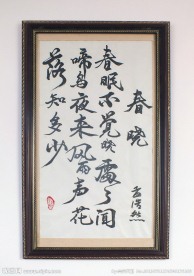 春晓
春眠不觉晓處々闻
啼鸟夜来风雨声花
落知多少
孟浩然